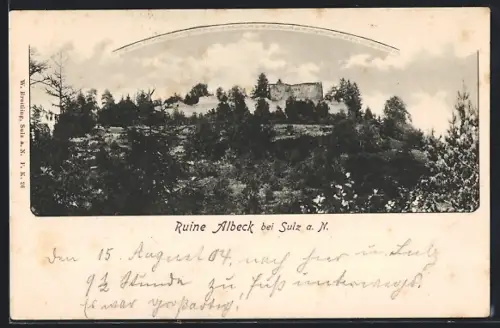 W. Breitling, Sulz a. N. F. K. 26
Ruine Albeck bei Sulz a. N.
den 15. August 04. nach hier u. Sulz
9½ Stunde zu Fuß unterwegs.
Es war großartig.